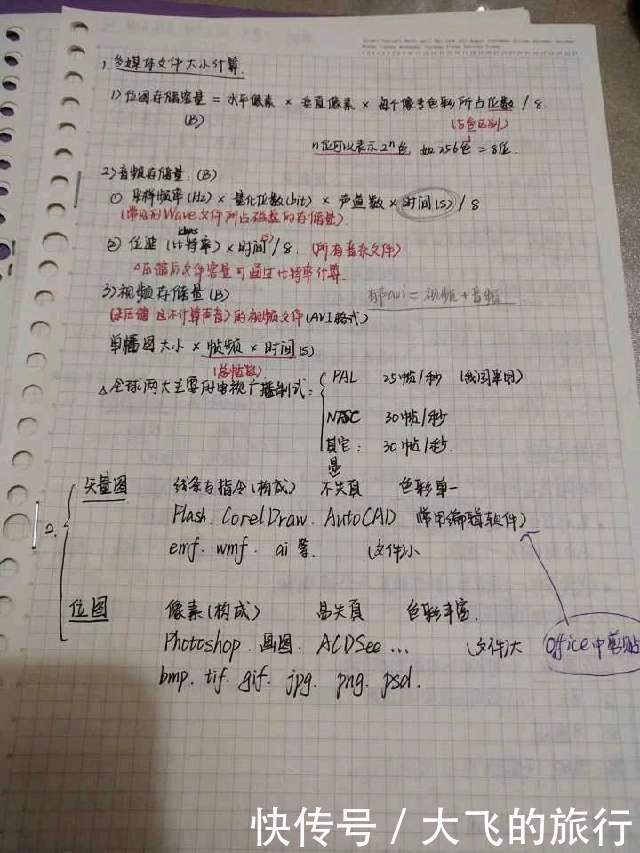 1. 多媒体文件大小计算.
1) 位图存储容量 = 水平像素 × 垂直像素 × 每个像素色彩所占位数 / 8
(B)
n位可以表示2ⁿ色 如256色 = 8位.
2) 音频存储量. (B)
① 采样频率(Hz) × 量化位数(bit) × 声道数 × 时间(s) / 8
(常见) Wave文件所占磁盘的存储量)
② 位速 (比特率) × 时间(s) / 8. (所有音乐文件)
压缩后文件容量可通过比特率计算.
3) 视频存储量 (B)
有声avi = 视频 + 音频
(未压缩且不计算声音) 的视频文件 (AVI格式)
单幅图大小 × 帧频 × 时间(s)
(总帧数)
△全球两大主要的电视广播制式:
PAL 25帧/秒 (我国采用)
NTSC 30帧/秒
其它: 30帧/秒
2.
矢量图 线条与指令(构成) 不失真 色彩单一
Flash. CorelDraw. AutoCAD (常用编辑软件)
emf. wmf. ai 等. (文件小
位图 像素(构成) 易失真 色彩丰富.
Photoshop. 画图. ACDSee ... (文件大 Office中剪贴
bmp. tif. gif. jpg. png. psd.
快传号 / 大飞的旅行